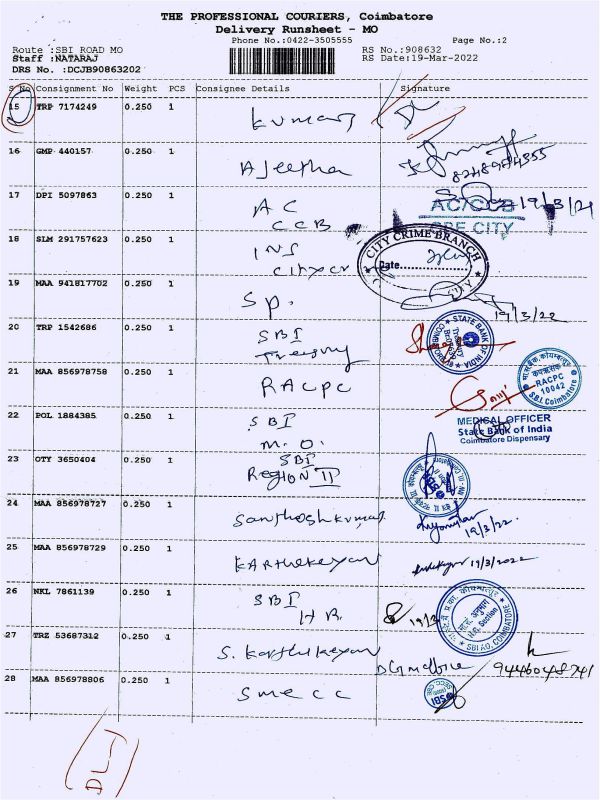 THE PROFESSIONAL COURIERS, Coimbatore
Delivery Runsheet - MO
Phone No.:0422-3505555
Page No.:2
Route :SBI ROAD MO
RS No.:908632
Staff :NATARAJ
RS Date:19-Mar-2022
DRS No. :DCJB90863202
S No Consignment No Weight PCS Consignee Details Signature
15 TRP 7174249 0.250 1 Kumar
16 GMP 440157 0.250 1 Ajeetha
17 DPI 5097863 0.250 1 AC CCB 19/3/22
AC/CCB
CBE CITY
18 SLM 291757623 0.250 1 INS
CITY CRIME BRANCH
Date
19 MAA 941817702 0.250 1 SP. 19/3/22
20 TRP 1542686 0.250 1 SBI Treasury
STATE BANK OF INDIA
21 MAA 856978758 0.250 1 RACPC
RACPC
10042
S.B.I. Coimbatore
22 POL 1884385 0.250 1 SBI M.O.
MEDICAL OFFICER
State Bank of India
Coimbatore Dispensary
23 OTY 3650404 0.250 1 SBI REGION II
24 MAA 856978727 0.250 1 Santhoshkumar 19/3/22
25 MAA 856978729 0.250 1 Karthikeyan 19/3/2022
26 NKL 7861139 0.250 1 SBI HR 19/3
H.R. Section
SBI AO, COIMBATORE
27 TRZ 53687312 0.250 1 S. Karthikeyan 9446048741
28 MAA 856978806 0.250 1 SMECC